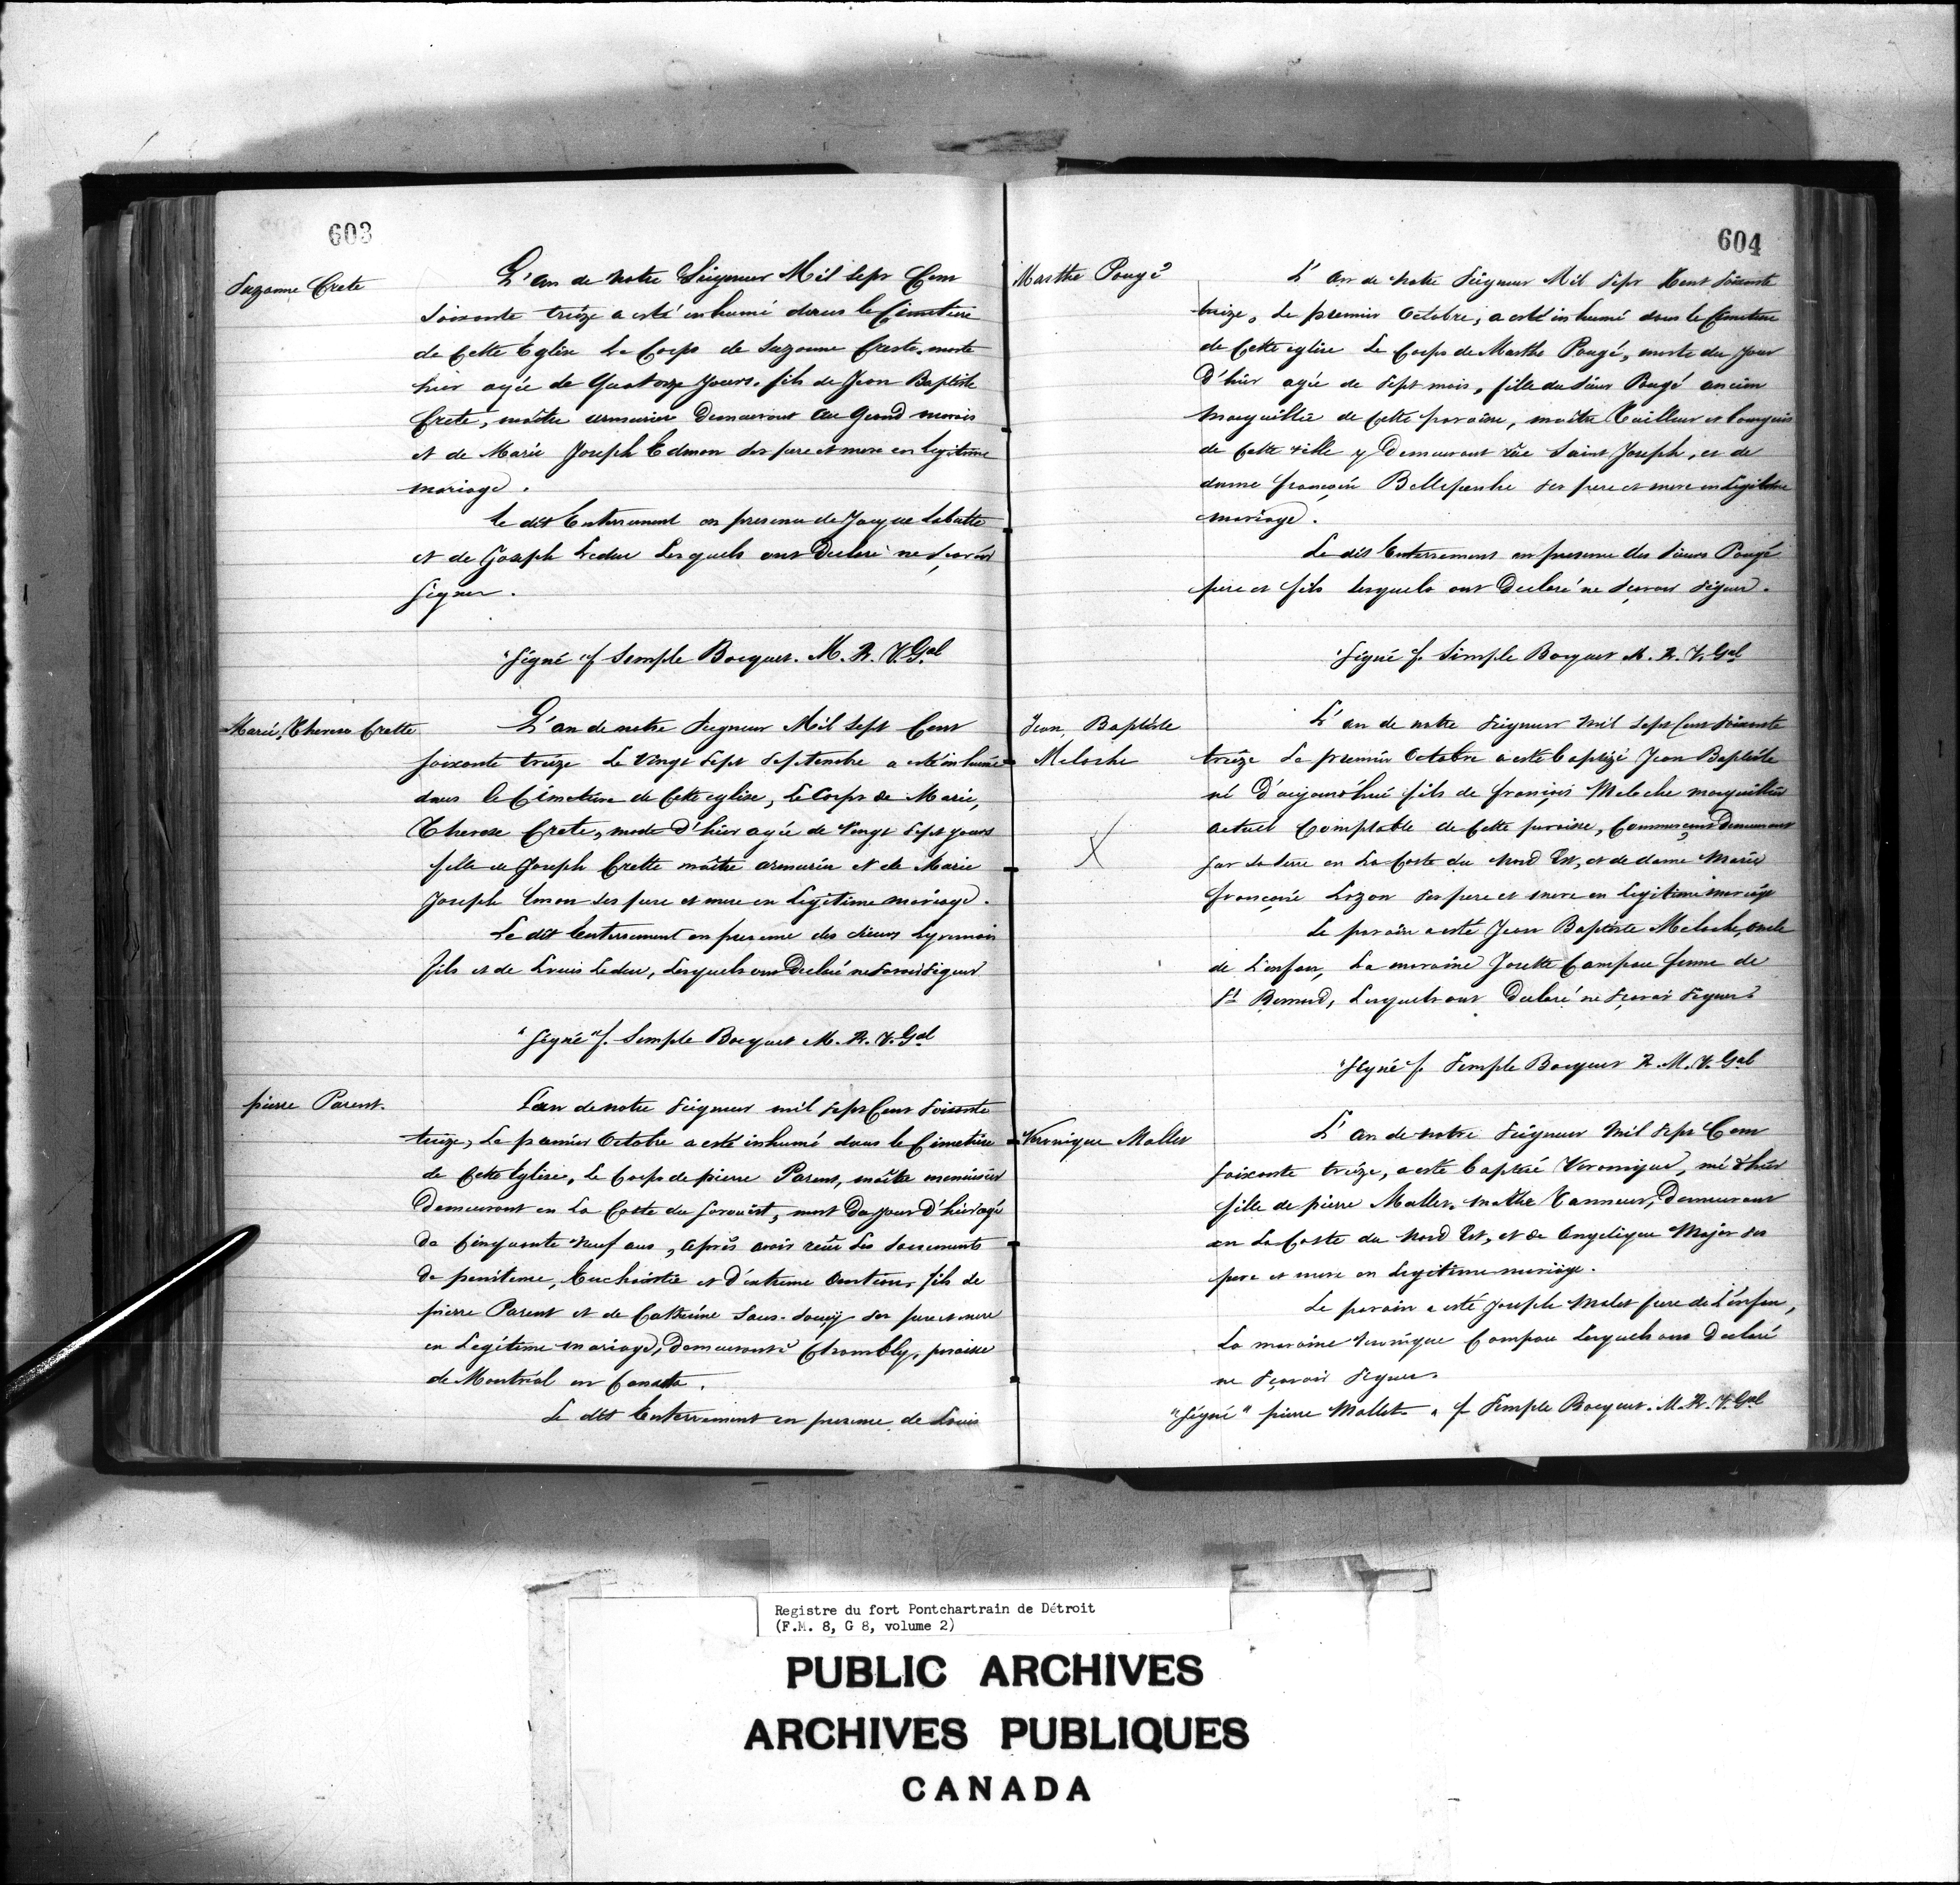 603
Suzanne Crete
L'an de notre Seigneur Mil Sept Cent
Soixante treize a esté inhumé dans le Cimetiere
de Cette Eglise Le Corps de Suzanne Creste, morte
hier agée de Quatorze Jours, fils de Jean Baptiste
Crete, maître armurier Demeurant au Grand marais
et de Marie Joseph Edmon ses pere et mere en legitime
mariage.
Le dit Enterrement en presence de Jacque Labutte
et de Joseph Leduc Lesquels ont Declaré ne Sçavoir
Signer.
"Signé" f Semple Bocquet. M. R. V. Gal
Marie, Therese Crette
L'an de notre Seigneur Mil Sept Cent
soixante treize Le Vingt Sept Septembre a esté inhumé
dans le Cimetiere de Cette eglise, Le Corps de Marie,
Therese Crete, morte d'hier agée de Vingt Sept jours
fille de Joseph Crette maître armurier et de Marie
Joseph Emon ses pere et mere en Legitime mariage.
Le dit Enterrement en presence des Sieurs
fils et de Louis Leduc, Lesquels ont Declaré ne Savoir Signer
"Signé" f. Semple Bocquet M. R. V. Gal
pierre Parent.
L'an de notre Seigneur mil Sept Cent Soixante
treize, Le premier Octobre a esté inhumé dans le Cimetiere
de Cette Eglise, Le Corps de pierre Parent, maître menuisier
Demeurant en La Coste du Sorouest, mort Du jour d'hier agé
de Cinquante Neuf ans, après avoir reçu Les Sacrements
de penitence, Euchaistie et d'extreme Onction, fils de
pierre Parent et de Catherine Sans-Souçy ses pere et mere
en Legitime mariage, Demeurant à Chambly, paroisse
de Montréal en Canada.
Le dit Enterrement en presence de Louis
604
Marthe Pougé
L'an de Notre Seigneur Mil Sept Cent Soixante
treize, Le premier Octobre, a esté inhumé dans le Cimetiere
de Cette eglise Le Corps de Marthe Pougé, morte du Jour
D'hier agée de Sept mois, fille du Sieur Pougé ancien
Marguillier de Cette paroisse, maître Tailleur et bourgeois
de Cette Ville y Demeurant rüe Saint Joseph, et de
dame françoise Belleperche ses pere et mere en Legitime
mariage.
Le dit Enterrement en presence des Sieurs Pougé
pere et fils lesquels ont Declaré ne Scavoir Signer.
"Signé f. Simple Bocquet M. R. V. Gal
Jean Baptiste
Meloche
X
L'an de notre Seigneur mil Sept Cent Soixante
treize Le premier Octobre a esté baptizé Jean Baptiste
né D'aujourd'hui fils de françois Meloche marguillier
actuel Comptable de Cette paroisse, Commerçant Demeurant
sur sa terre en La Coste du Nord Est, et de dame Marie
françoise Lozon ses pere et mere en Legitime mariage
Le parain a esté Jean Baptiste Meloche, oncle
de L'enfan, La maraine Josette Campau femme de
St Bernard, Lesquels ont Declaré ne Sçavoir Signer.
"Signé f. Semple Bocquet R. M. V. Gal
Veronique Mallet
L'an de notre Seigneur Mil Sept Cent
soixante treize, a esté baptisé Veronique, né d'hier
fille de pierre Mallet, maître Tanneur, Demeurant
en La Coste du Nord Est, et de Angelique Major ses
pere et mere en Legitime mariage.
Le parain a esté Joseph Malet frere de L'enfan,
La maraine Veronique Campau Lesquels ont Declaré
ne Sçavoir Signer.
"Signé" pierre Mallet. " f Semple Bocquet. M. R. V. Gal
Registre du fort Pontchartrain de Détroit
(F.M. 8, G 8, volume 2)
PUBLIC ARCHIVES
ARCHIVES PUBLIQUES
CANADA